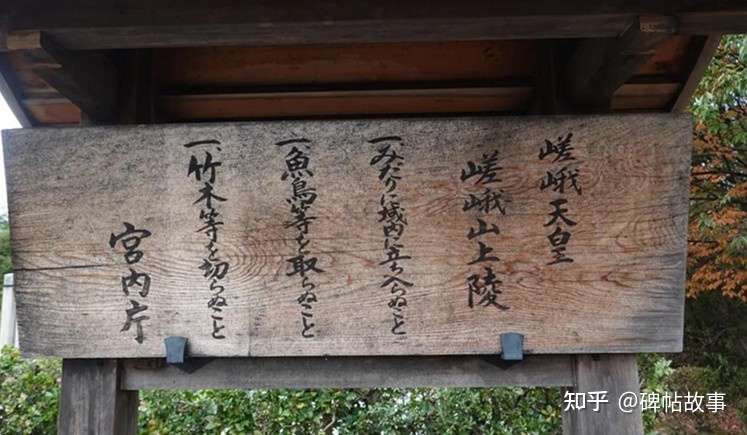 嵯峨天皇
嵯峨山上陵
一、みだりに域内に立ち入らぬこと
一、魚鳥等を取らぬこと
一、竹木等を切らぬこと
宮内庁
知乎 @碑帖故事